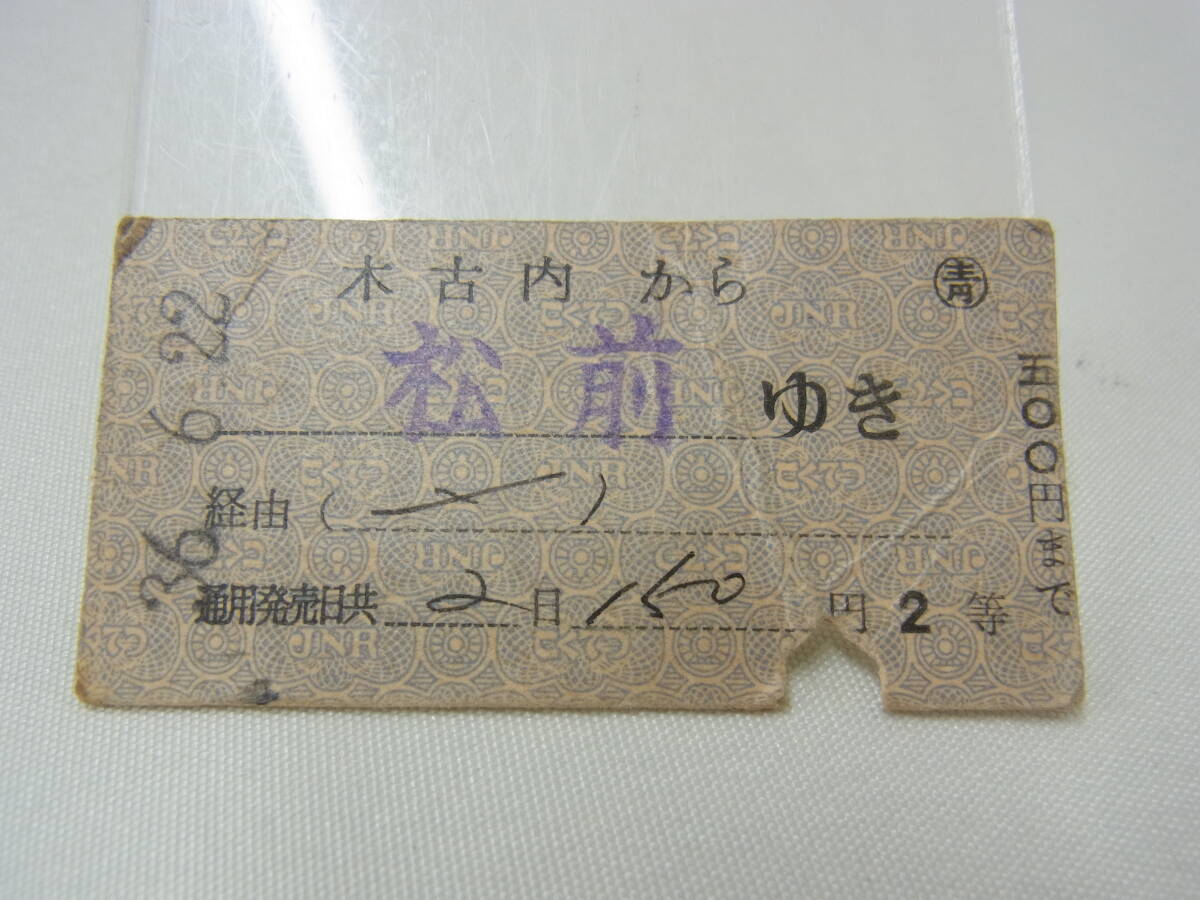 木古内 から � 青
松前 ゆき
経由( )
通用発売日共 2 日 150 円 2 等
五〇〇円まで
36 6 22
JNR こくてつ